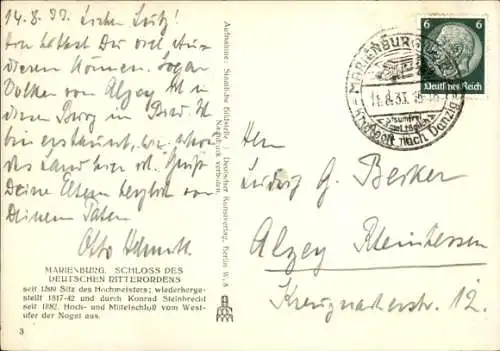 14.8.33. Lieber Lutz!
Hier hättest Du viel
können. Sogar
Volker von Alzey ist in
dieser Burg in
Bin erstaunt, wie schön
das Land hier ist. Grüß
Deine Eltern herzlich von
Deinem Paten
Otto
MARIENBURG. SCHLOSS DES
DEUTSCHEN RITTERORDENS
seit 1309 Sitz des Hochmeisters; wiederherge-
stellt 1817-42 und durch Konrad Steinbrecht
seit 1882. Hoch- und Mittelschloß vom West-
ufer der Nogat aus.
3
Aufnahme: Staatliche Bildstelle / Deutscher Kunstverlag, Berlin W. 8
Nachdruck verboten.
6 6
Deutsches Reich
MARIENBURG
8.33
nach Danzig
Herrn
Ludwig G. Berker
Alzey Rheinhessen
Kreuznacherstr 12.